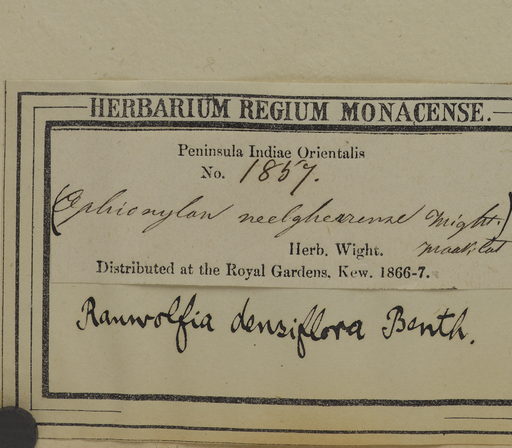 HERBARIUM REGIUM MONACENSE.
Peninsula Indiae Orientalis
No. 1857.
(Ophioxylon neelgherrense Wight.)
Herb. Wight.
Distributed at the Royal Gardens, Kew. 1866-7.
Rauwolfia densiflora Benth.